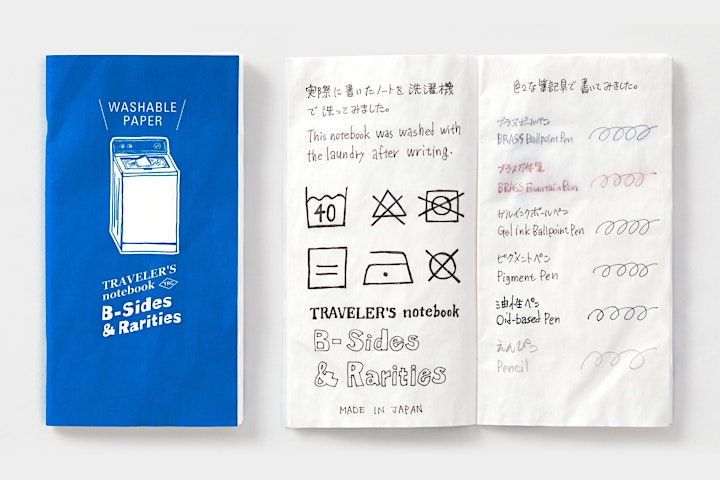 WASHABLE
PAPER
TRAVELER'S
notebook TRC
B-Sides
& Rarities
実際に書いたノートを洗濯機
で洗ってみました。
This notebook was washed with
the laundry after writing.
40
TRAVELER'S notebook
B-Sides
& Rarities
MADE IN JAPAN
色々な筆記具で書いてみました。
ブラスボールペン
BRASS Ballpoint Pen
ブラス万年筆
BRASS Fountain Pen
ゲルインクボールペン
Gel ink Ballpoint Pen
ピグメントペン
Pigment Pen
油性ペン
Oid-based Pen
えんぴつ
Pencil